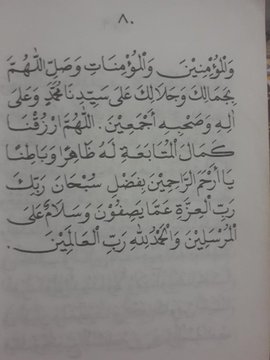 ٨٠
وَالْمُؤْمِنِيْنَ وَالْمُؤْمِنَاتِ وَصَلِّ اللّٰهُمَّ
بِجَمَالِكَ وَجَلَالِكَ عَلَى سَيِّدِنَا مُحَمَّدٍ وَعَلَى
اٰلِهِ وَصَحْبِهِ أَجْمَعِيْنَ . اَللّٰهُمَّ ارْزُقْنَا
كَمَالَ الْمُتَابَعَةِ لَهُ ظَاهِرًا وَبَاطِنًا
يَا أَرْحَمَ الرَّاحِمِيْنَ بِفَضْلِ سُبْحَانَ رَبِّكَ
رَبِّ الْعِزَّةِ عَمَّا يَصِفُوْنَ وَسَلَامٌ عَلَى
الْمُرْسَلِيْنَ وَالْحَمْدُ لِلّٰهِ رَبِّ الْعَالَمِيْنَ .